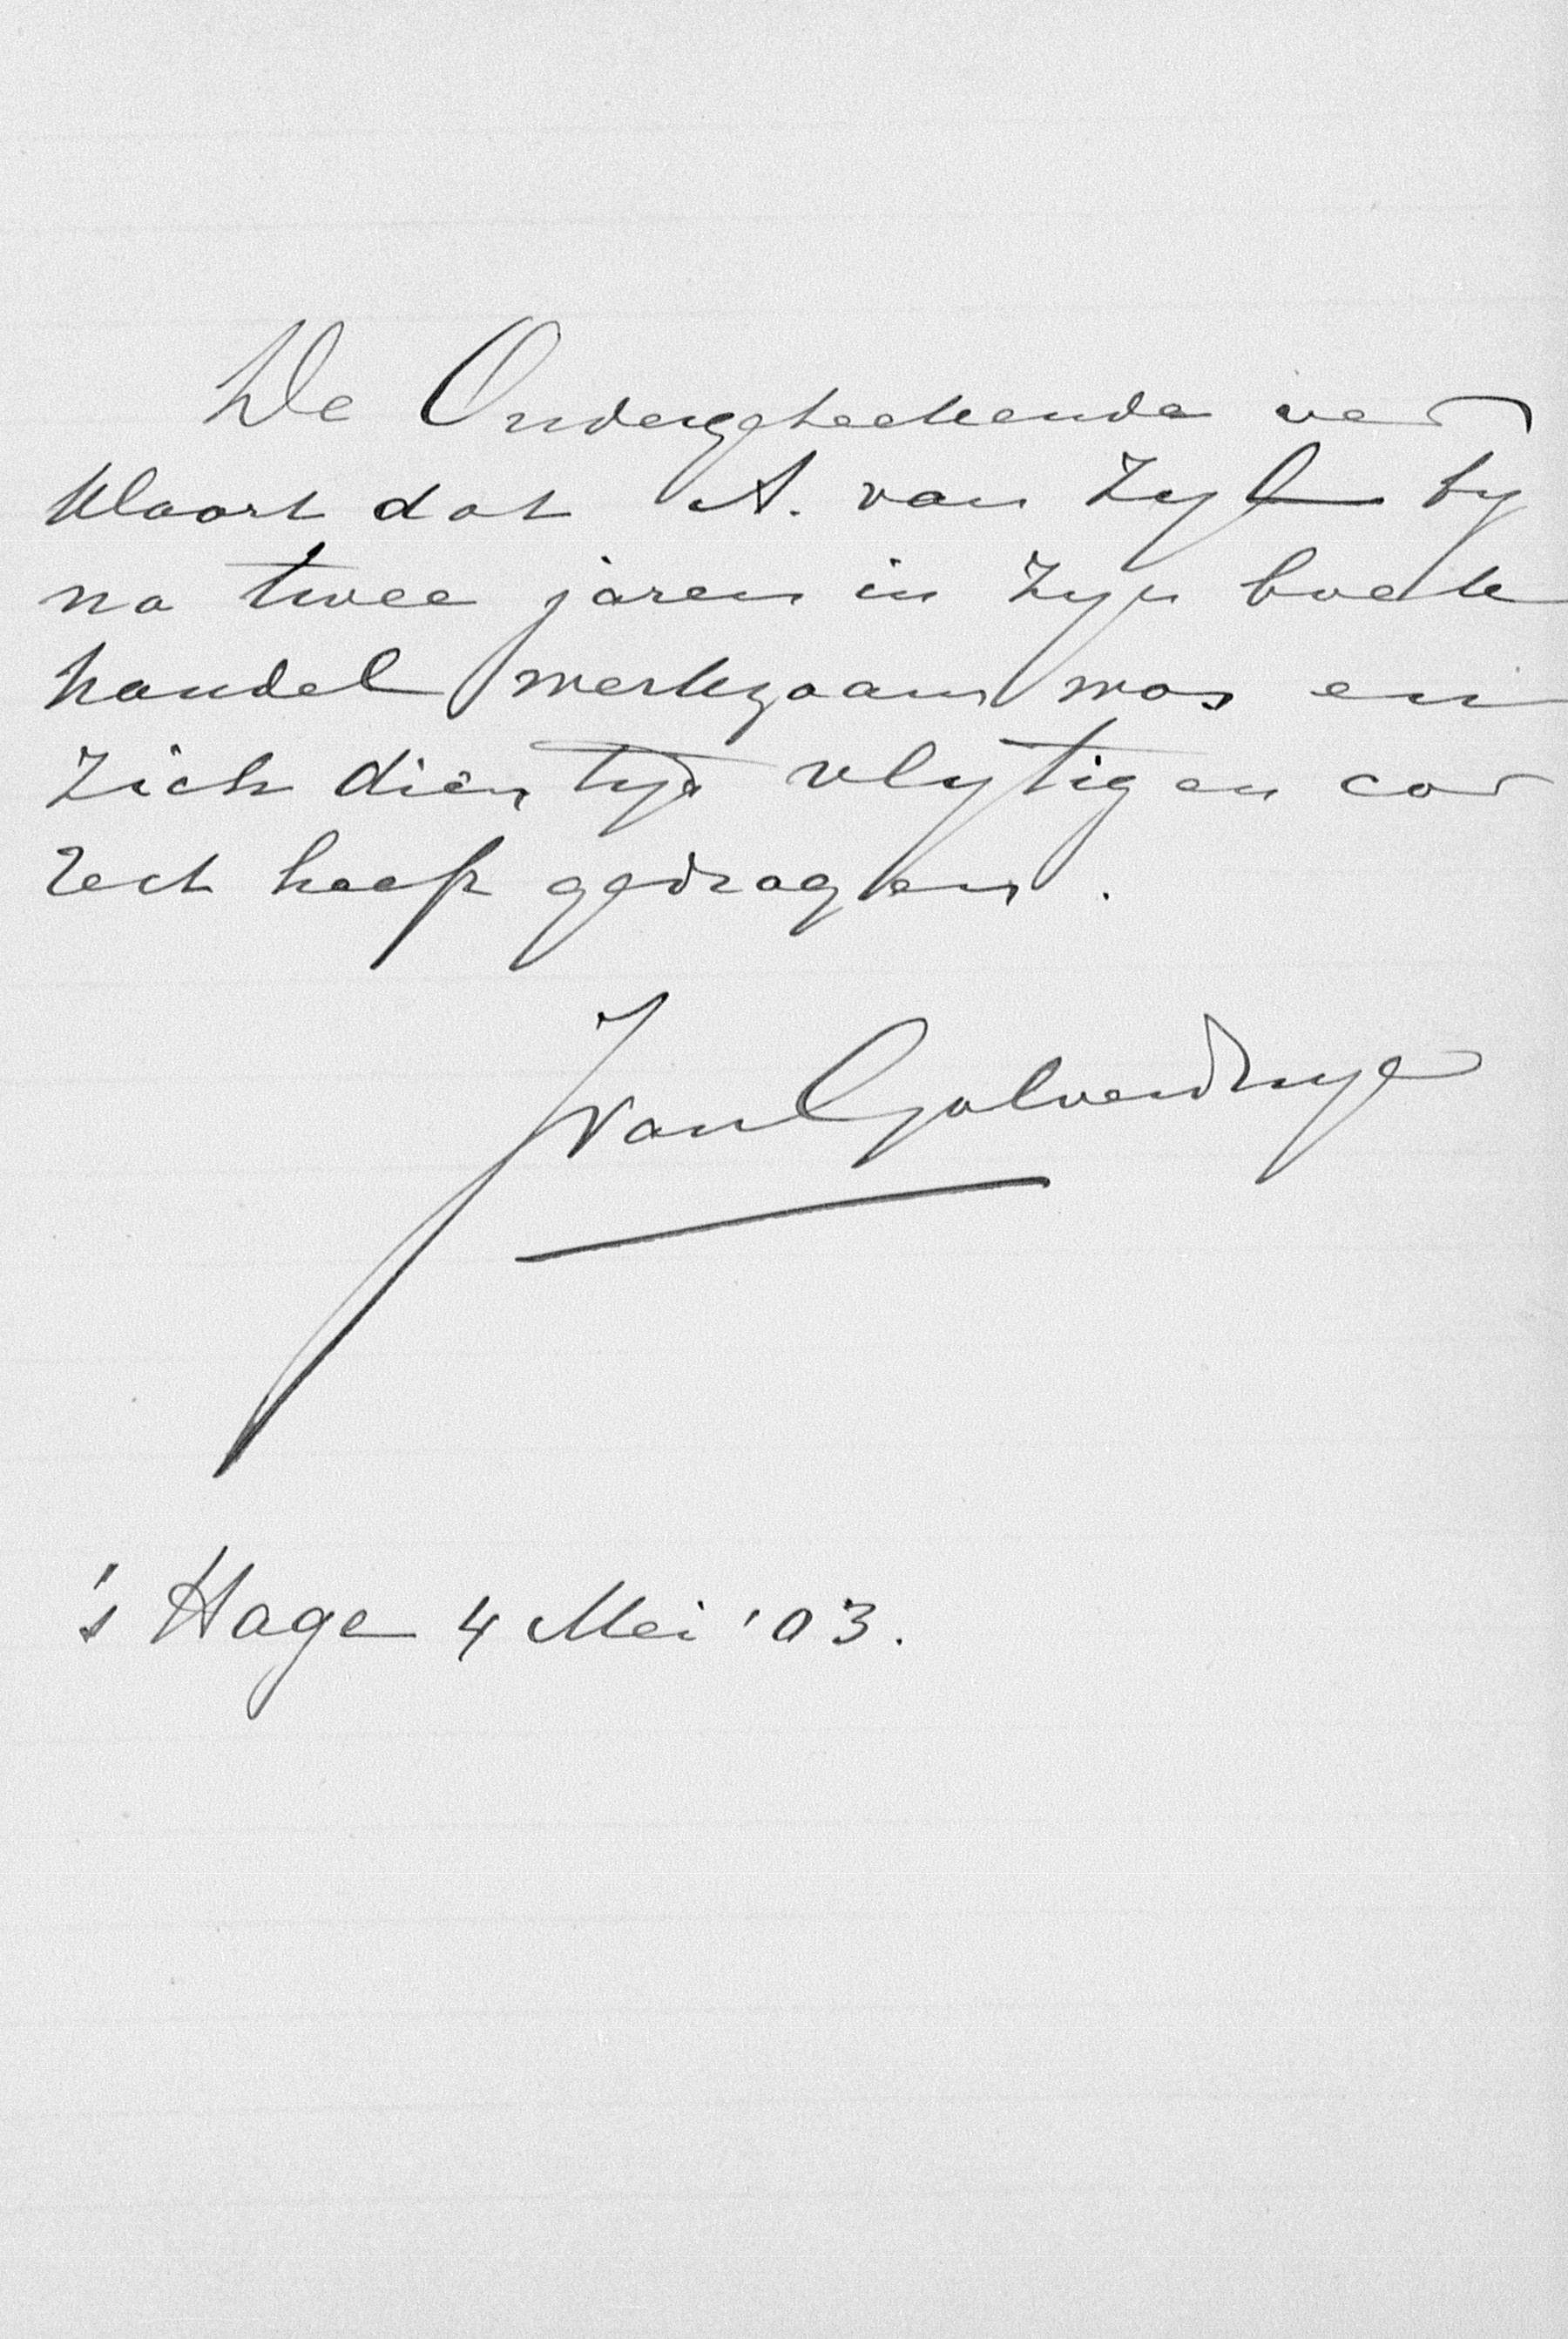 De Ondergeteekende ver
klaart dat A. van Zyl by
na twee jaren in zyn boek
handel werkzaam was en
zich dien tyd vlytig en cor
rect heeft gedragen.
's Hage 4 Mei '03.